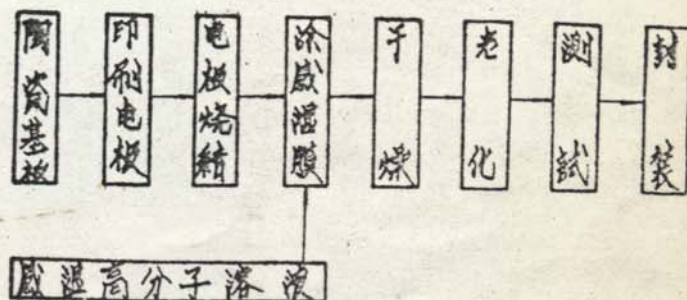 陶瓷基板
印刷电极
电极烧结
涂感湿膜
干燥
老化
测试
封装
感湿高分子溶液